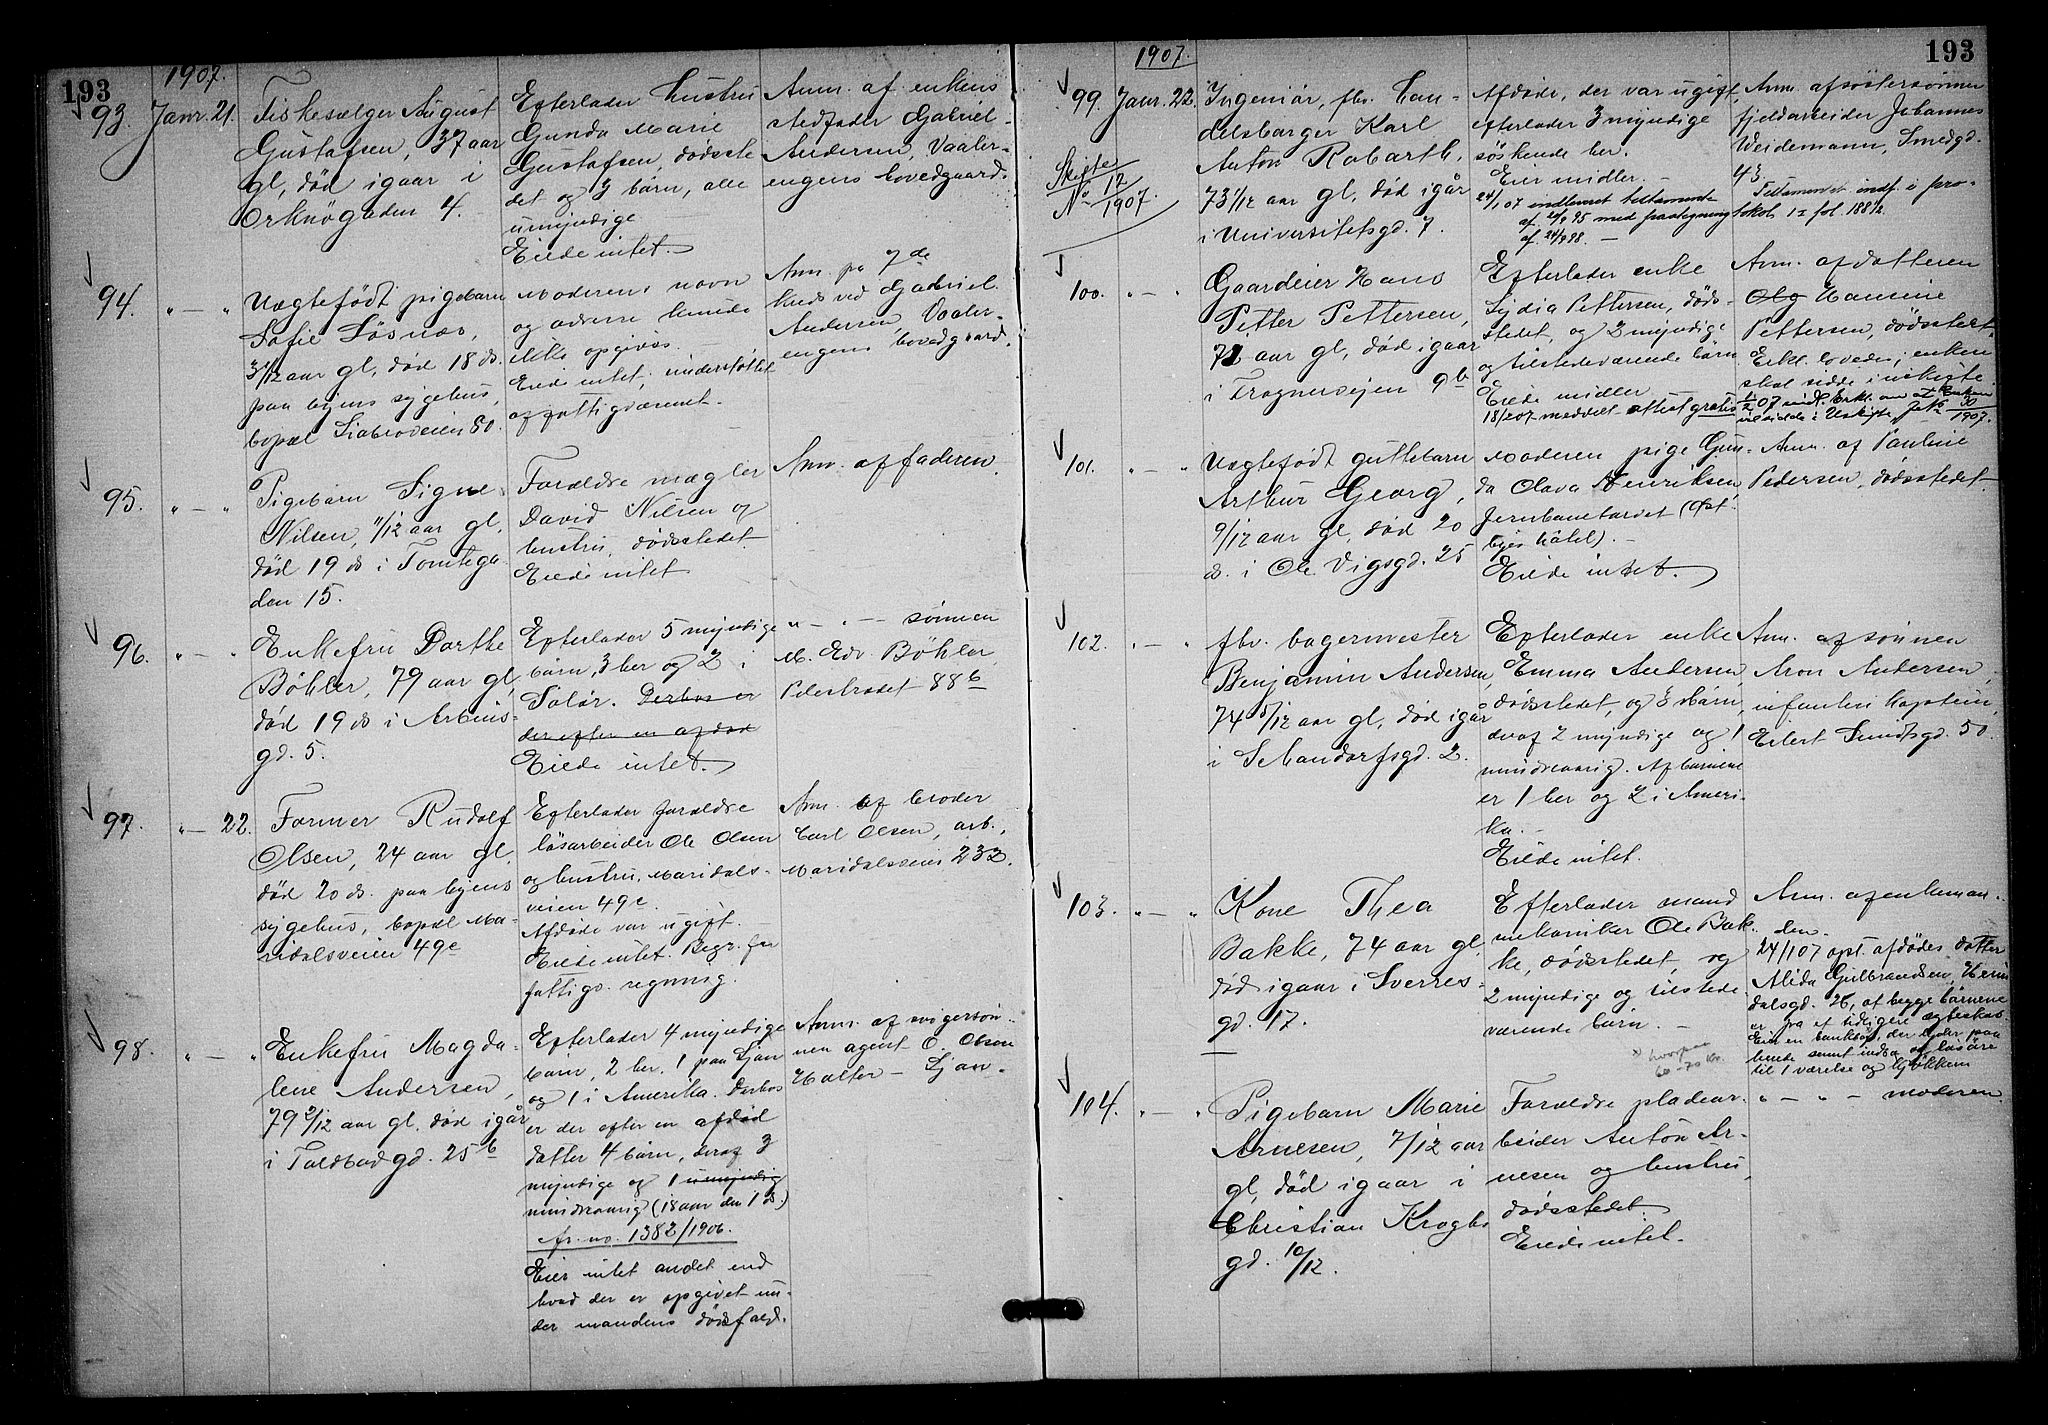 193
1907.
93.
Janr. 21.
Fiskesælger August
Gustafsen, 37 aar
gl, død igaar i
Orknögaden 4.
Efterlader hustru
Gunda Marie
Gustafsen, dødsste
det og 3 børn, alle
umyndige
Eiede intet.
Anm. af enkens
stedfader Gabriel
Andersen, Vaaler-
engens hovedgaard.
94.
" — "
Uægtefødt pigebarn
Sofie Løsnæs,
3/12 aar gl, død 18 ds.
paa byens sygehus,
bopæl Siabroveien 80.
Moderens navn
og adresse kunde
ikke opgives.
Eiede intet; understøttet
af fattigvæsenet.
Anm. pr 7de
kreds ved Gabriel
Andersen, Vaaler-
engens hovedgaard.
95.
" — "
Pigebarn Signe
Nilsen, 11/12 aar gl,
død 19 ds i Tomtega
den 15.
Forældre mægler
David Nilsen og
hustru, dødsstedet.
Eiede intet
Anm. af faderen.
96.
" — "
Enkefru Dorthe
Böhler, 79 aar gl,
død 19 ds i Arbins-
gd. 5.
Efterlader 5 myndige
børn, 3 her og 2 i
Solör. Derhos er
der efter en afdød
Eiede intet.
" — " — sønnen
M. Edv. Böhler,
Pilestrædet 88b
97.
" — 22.
Former Rudolf
Olsen, 24 aar gl,
død 20 ds. paa byens
sygehus, bopæl Ma-
ridalsveien 49c
Efterlader forældre
løsarbeider Ole Olsen
og hustru, Maridals-
veien 49c.
Afdøde var ugift.
Eiede intet. Begr. for
fattigv. regning.
Anm. af broder
Carl Olsen, arb.,
Maridalsveien 233.
98.
" — "
Enkefru Magda-
lene Andersen,
79 2/12 aar gl, død igår
i Toldbodgd. 25b
Efterlader 4 myndige
børn, 2 her, 1 paa Ljan
og 1 i Amerika. Derhos
er der efter en afdød
datter 4 børn, deraf 3
myndige og 1 umyndig
mindreaarig (18 aar den 1 ds.)
fr. no. 1382/1906.
Eier intet andet end
hvad der er opgivet un-
der mandens dødsfald.
Anm. af svigersøn-
nen agent O. Olsen
Holter — Ljan.
193
1907.
99.
Janr. 22.
Skifte
No 12
1907.
Ingeniør, fhv. han-
delsborger Karl
Anton Robarth,
73 1/12 aar gl, død igår
i Universitetsgd. 7.
Afdøde, der var ugift,
efterlader 3 myndige
søskende her.
Eier midler. —
24/1 07 indleveret testamente
af 95 med paategning
af 24/9 98. —
Anm. af søstersønnen
fjeldarbeider Johannes
Weidemann, Smedgd.
43.
Testamentet indf. i pro-
tokol 12 fol. 188½
100.
" — "
Gaardeier Hans
Petter Pettersen,
71 aar gl, død igaar
i Frognerveien 9b
Efterlader enke
Lydia Pettersen, døds-
stedet, og 2 myndige
og tilstedeværende børn
Eiede midler
18/2 07 meddelt attest gratis
Anm. af datteren
Olg Hansine
Pettersen, dødsstedet.
Erkl. lovedes; enken
skal sidde i uskifte.
07 indk. Erkl. om at Enken
vil sidde i Uskifte. Jr. No 1907.
101.
" — "
Uægtefødt guttebarn
Arthur Georg,
9/12 aar gl, død 20
ds. i Ole Vigsgd. 25
Moderen pige Gun-
da Olava Henriksen,
Jernbanetorvet (Øst-
byes hôtel). —
Eiede intet.
Anm. af Pauline
Pedersen, dødsstedet.
102.
" — "
fhv. bagermester
Benjamin Andersen,
74 5/12 aar gl, død igår
i Schandorfsgd. 2.
Efterlader enke
Emma Andersen,
dødsstedet, og 3 børn,
deraf 2 myndige og 1
mindreaarig. Af børnene
er 1 her og 2 i Ameri-
ka. —
Eiede intet.
Anm. af sønnen
Aron Andersen,
infanteri kaptein,
Eilert Sundtsgd. 50.
103.
" — "
Kone Thea
Bakke, 74 aar gl,
død igaar i Sverres-
gd. 17.
Efterlader mand
mekaniker Ole Bak-
ke, dødsstedet, og
2 myndige og tilstede-
værende børn. —
hvorpaa
60 - 70 Kr.
Anm. af enkeman-
den.
24/1 07 opl. afdødes datter
Alida Gulbrandsen, Heim
dalsgd. 26, at begge børnene
er fra et tidligere ægteskab
Eier en bankbog, der lyder paa
hende samt indbo og løsøre
til 1 værelse og kjøkken
104.
" — "
Pigebarn Marie
Arnesen, 7/12 aar
gl, død igaar i
Christian Kroghs
gd. 10/12.
Forældre pladear-
beider Anton Ar-
nesen og hustru,
dødsstedet.
Eiede intet.
" — " — moderen.